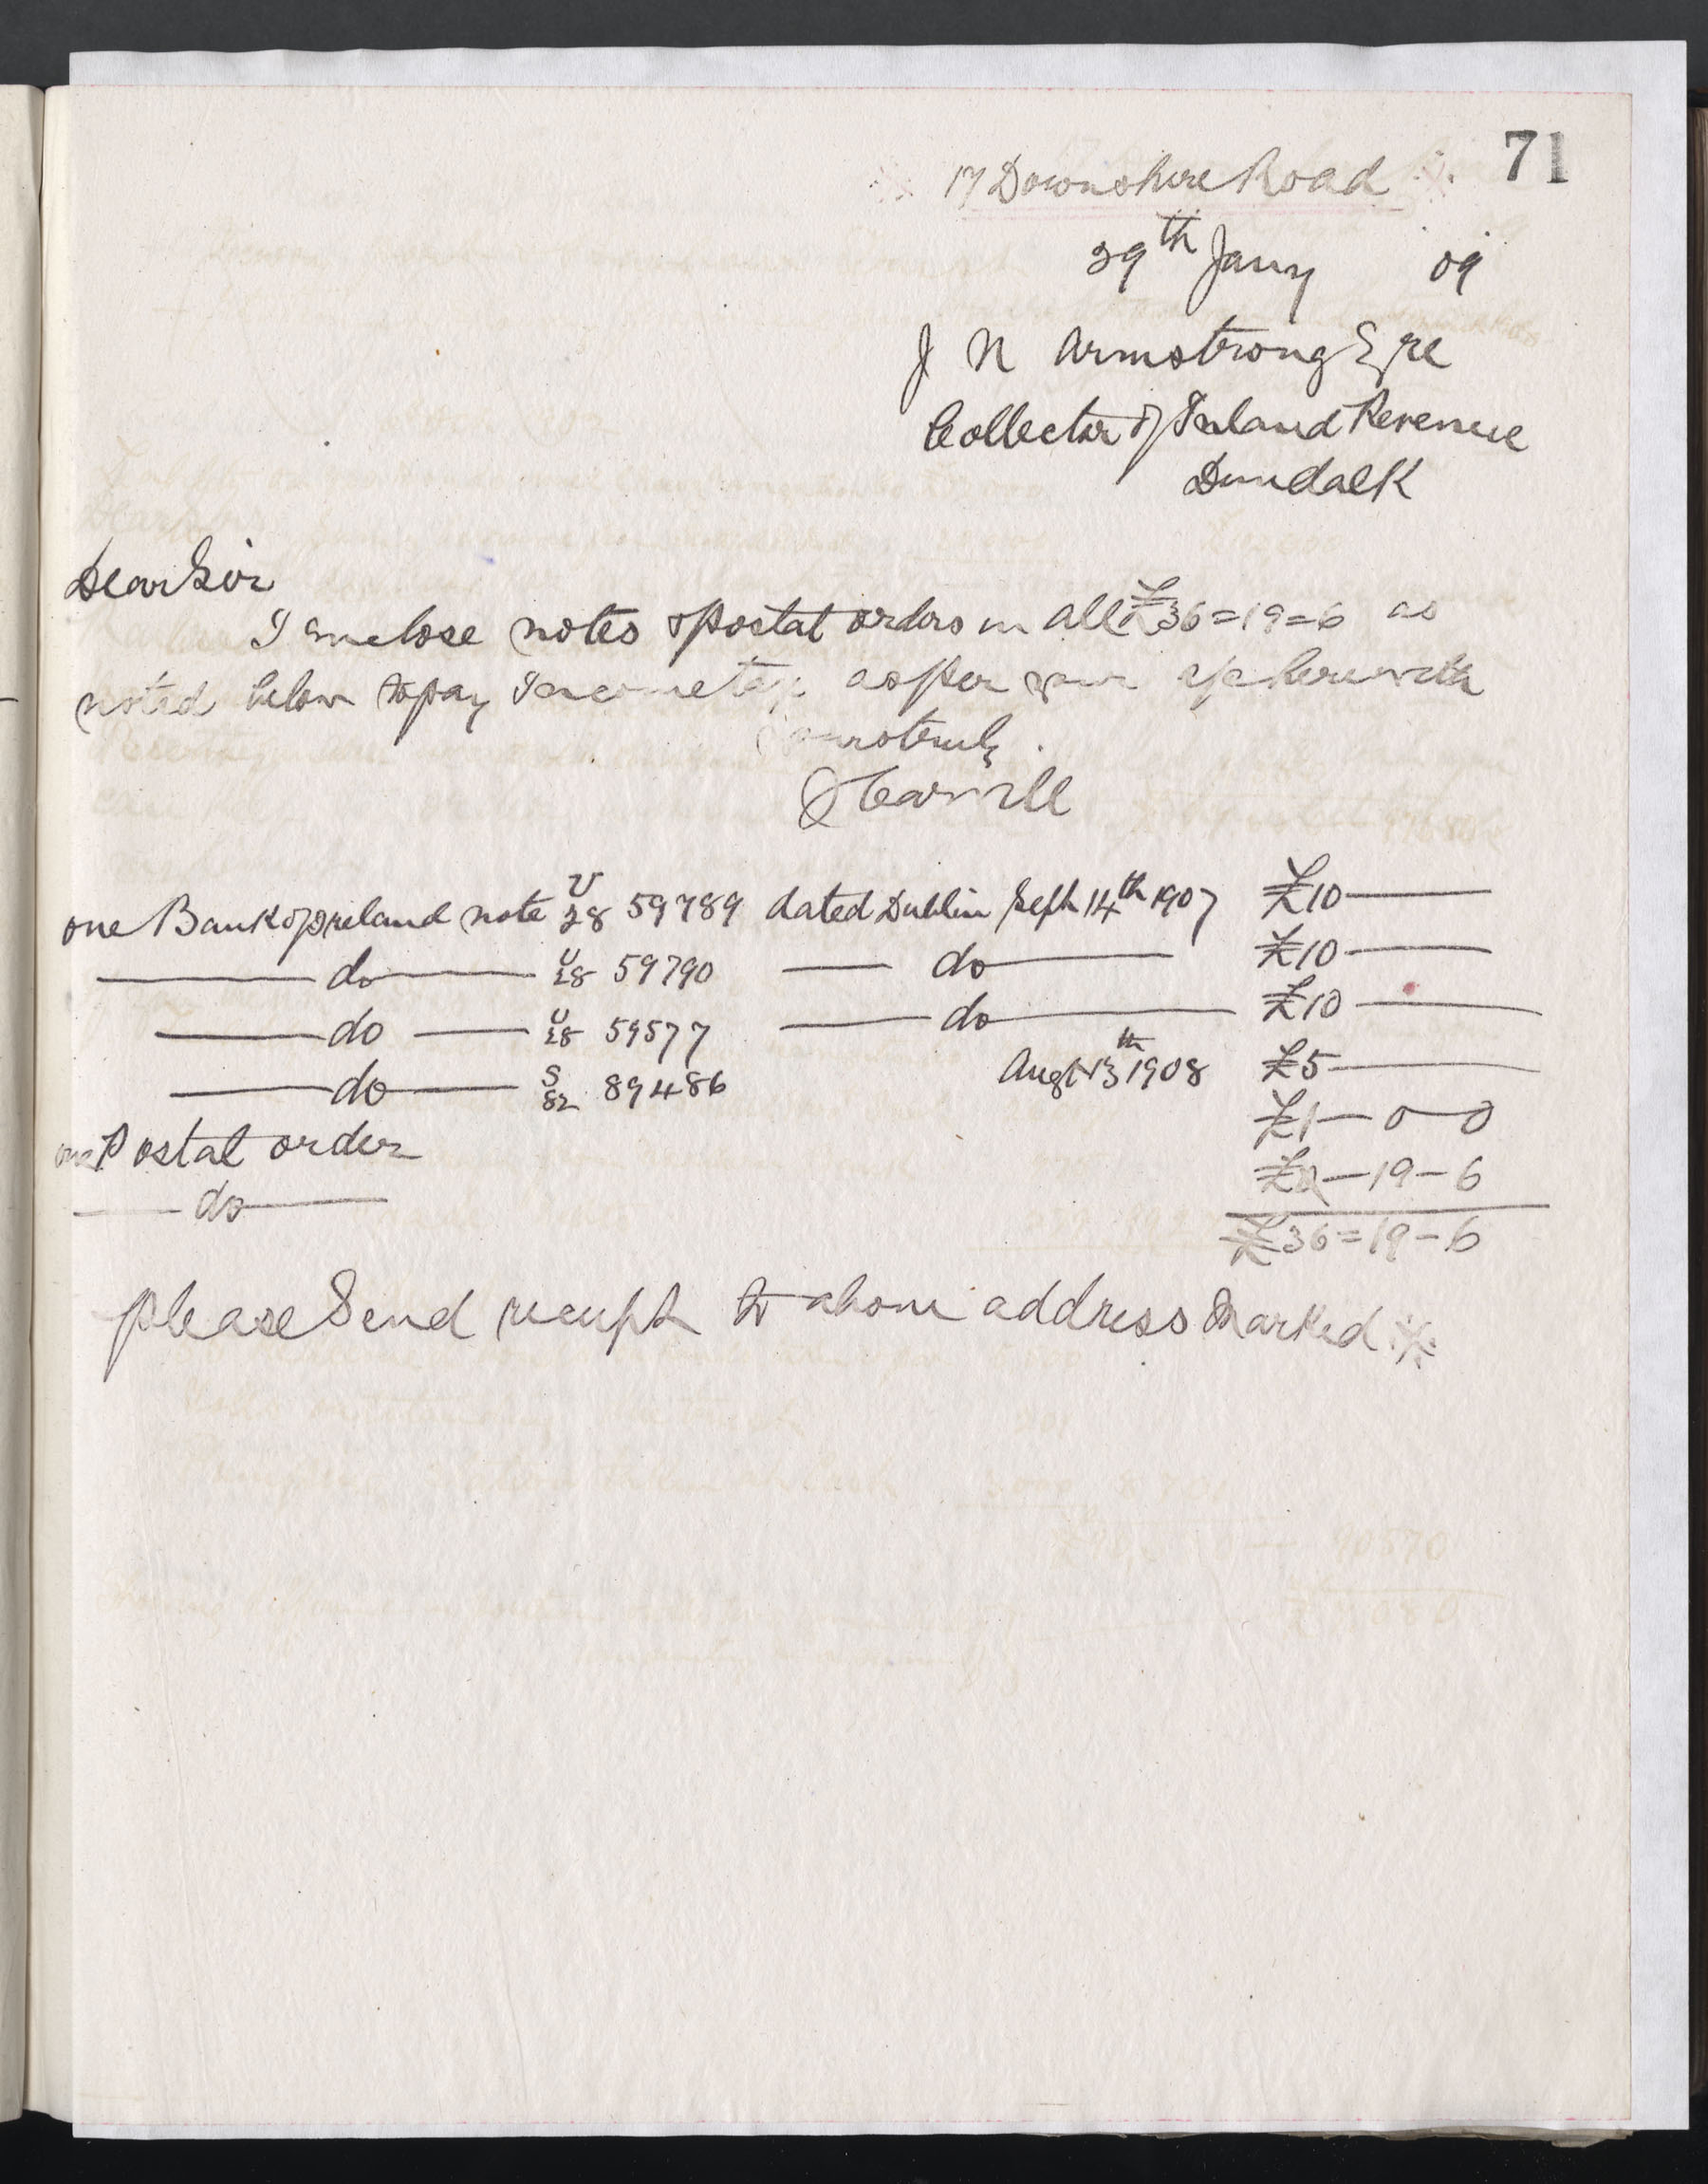 71
※ 17 Downshire Road ※
29th Jany 09
J N Armstrong Esqre
Collector of Inland Revenue
Dundalk
Dear Sir
I enclose notes & Postal orders in all £36=19=6 as
noted below to pay Income tax as per your a/c herewith
yours truly
J Carvill
one Bank of Ireland note U/28 59789 dated Dublin Sept 14th 1907 £10 —
— do — U/28 59790 — do — £10 —
— do — U/28 59577 — do — £10 —
— do — S/82 89486 Augt 13th 1908 £5 —
one Postal order £1 — 0 — 0
— do — £0 — 19 — 6
£36=19-6
please Send receipt to above address marked ※